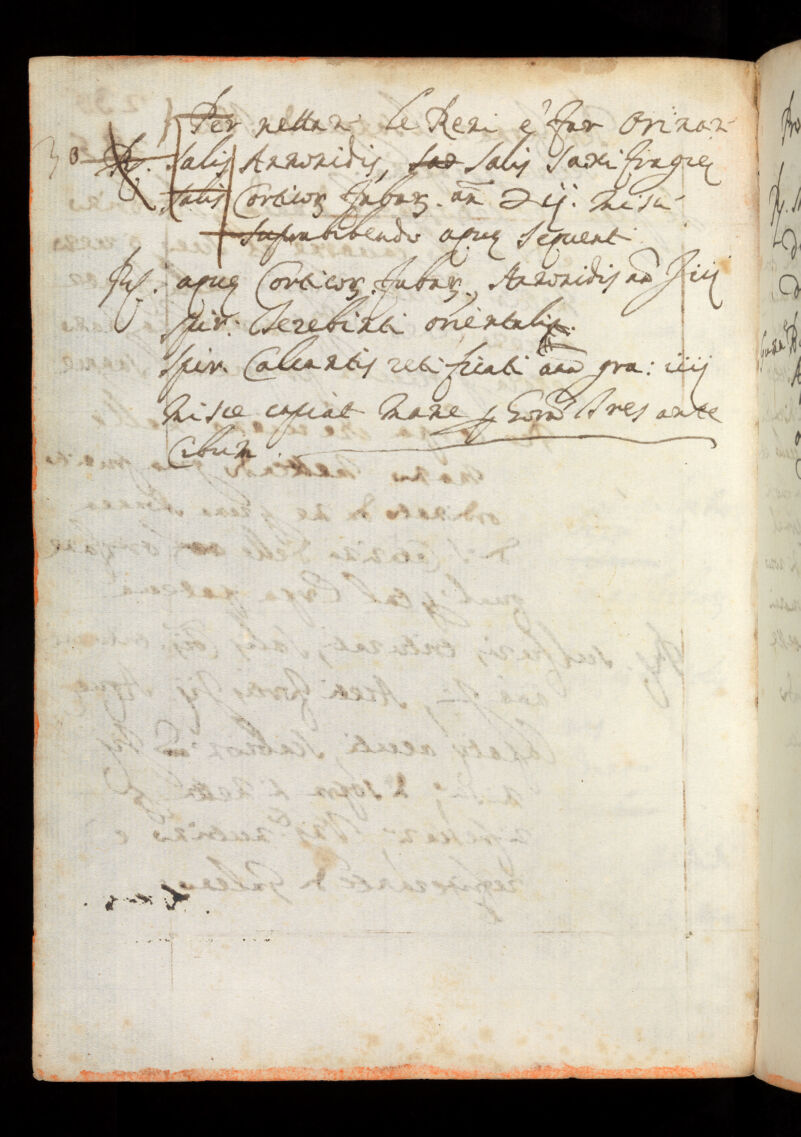 Per nettar le Reni e' far Orinar
30 ℞. Salis Annonidis, Salis Saxifragiæ
Salis Corticor Fabar. an ℈ ij. Misce
Suprabibendo aquæ sequenti
℞. aquæ Corticor. Fabar. Annonidis an ℥ iij
Spir: Terebinti orientalis.
Spir. Calcantis retificati ana gra: iiij
Misce capiat mane p hora tres ante
Cibum.